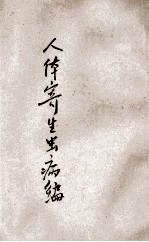 人体寄生虫病编